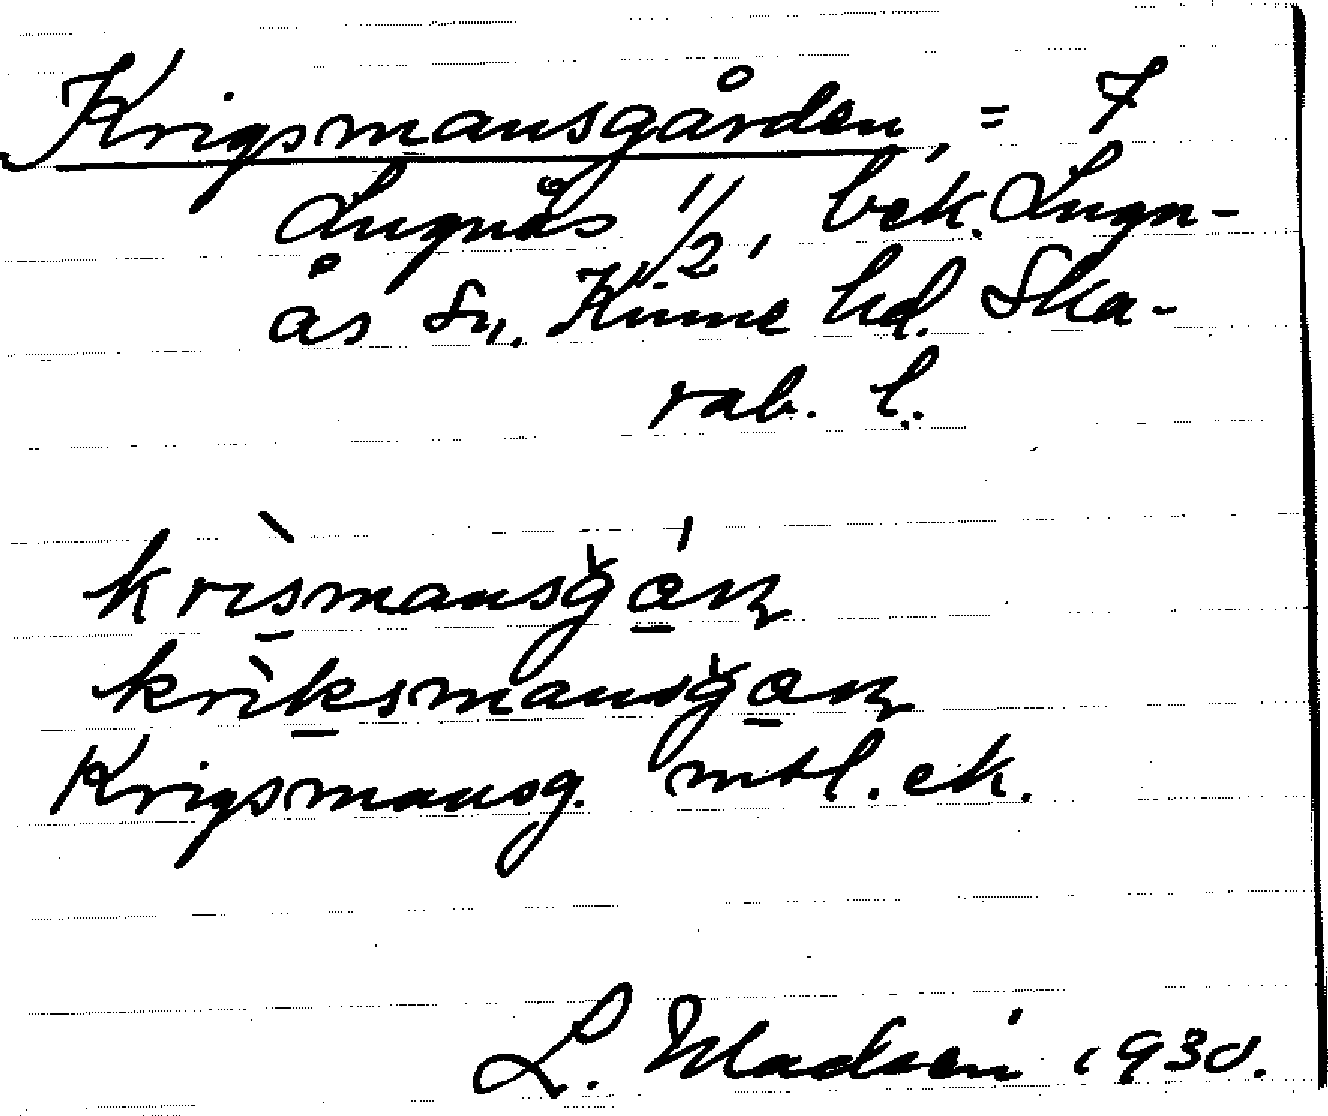 Krigsmansgården, = 7
Lugnås 1/2, bek. Lugn-
ås sn. Kinne hd. Ska-
rab. l.
krìsmansgán
krìksmansgan
Krigsmansg. mtl. ek.
L. Madsén 1930.